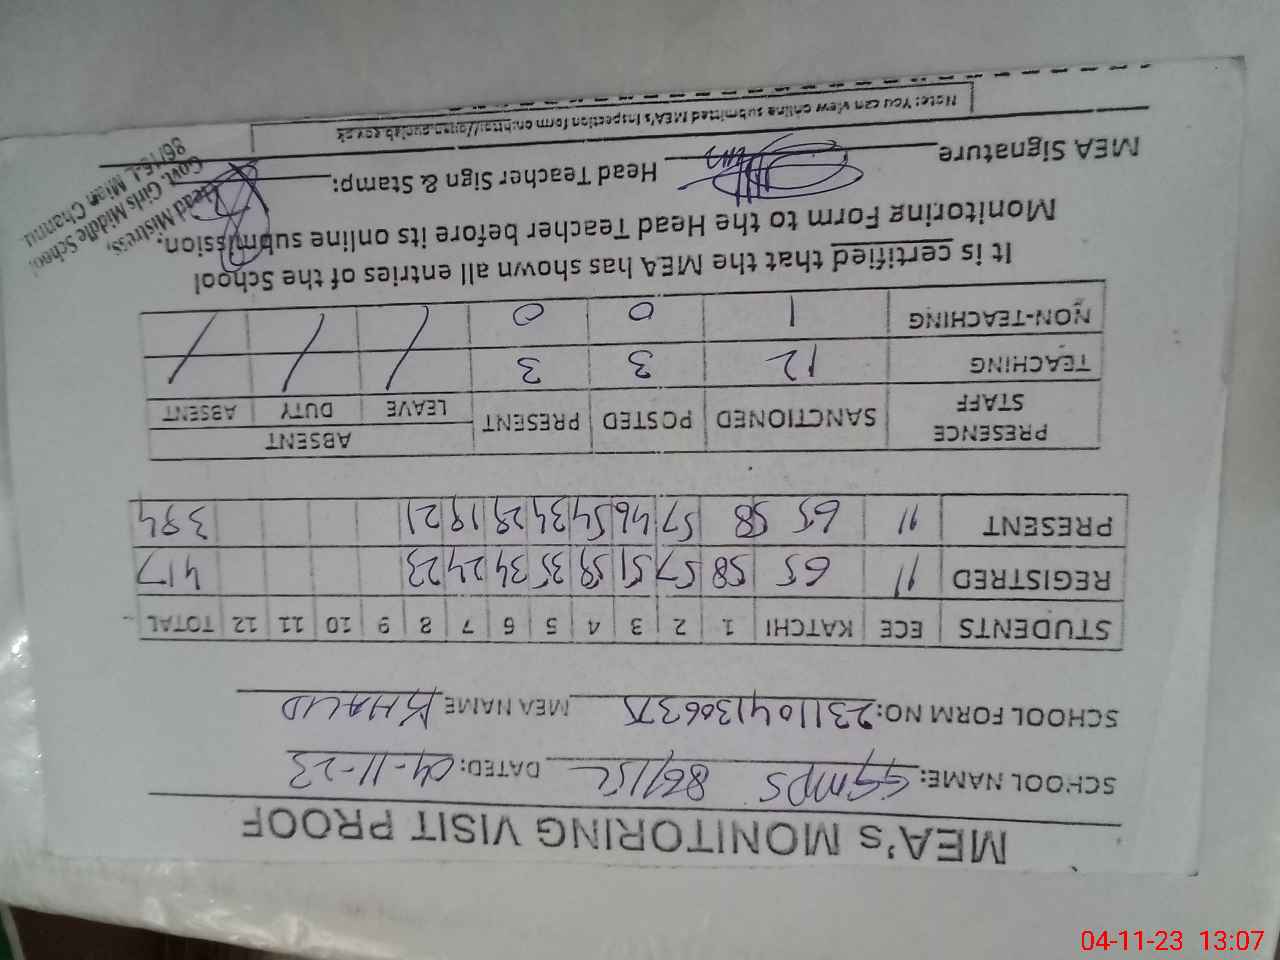 MEA's MONITORING VISIT PROOF
SCHOOL NAME: GGMPS 86/15L DATED: 04-11-23
SCHOOL FORM NO: 2311041306375 MEA NAME KHALID
STUDENTS ECE KATCHI 1 2 3 4 5 6 7 8 9 10 11 12 TOTAL
REGISTRED 11 65 58 57 51 59 35 34 24 23 417
PRESENT 11 65 58 57 46 54 34 29 19 21 394
PRESENCE STAFF SANCTIONED POSTED PRESENT ABSENT
LEAVE DUTY ABSENT
TEACHING 12 3 3 /
NON-TEACHING 1 0 0 /
It is certified that the MEA has shown all entries of the School
Monitoring Form to the Head Teacher before its online submission.
MEA Signature Head Teacher Sign & Stamp:
Head Mistress,
Govt. Girls Middle School
86/15-L Mian Channu
Note: You can view online submitted MEA's Inspection form on:http://open.punjab.gov.pk
04-11-23 13:07